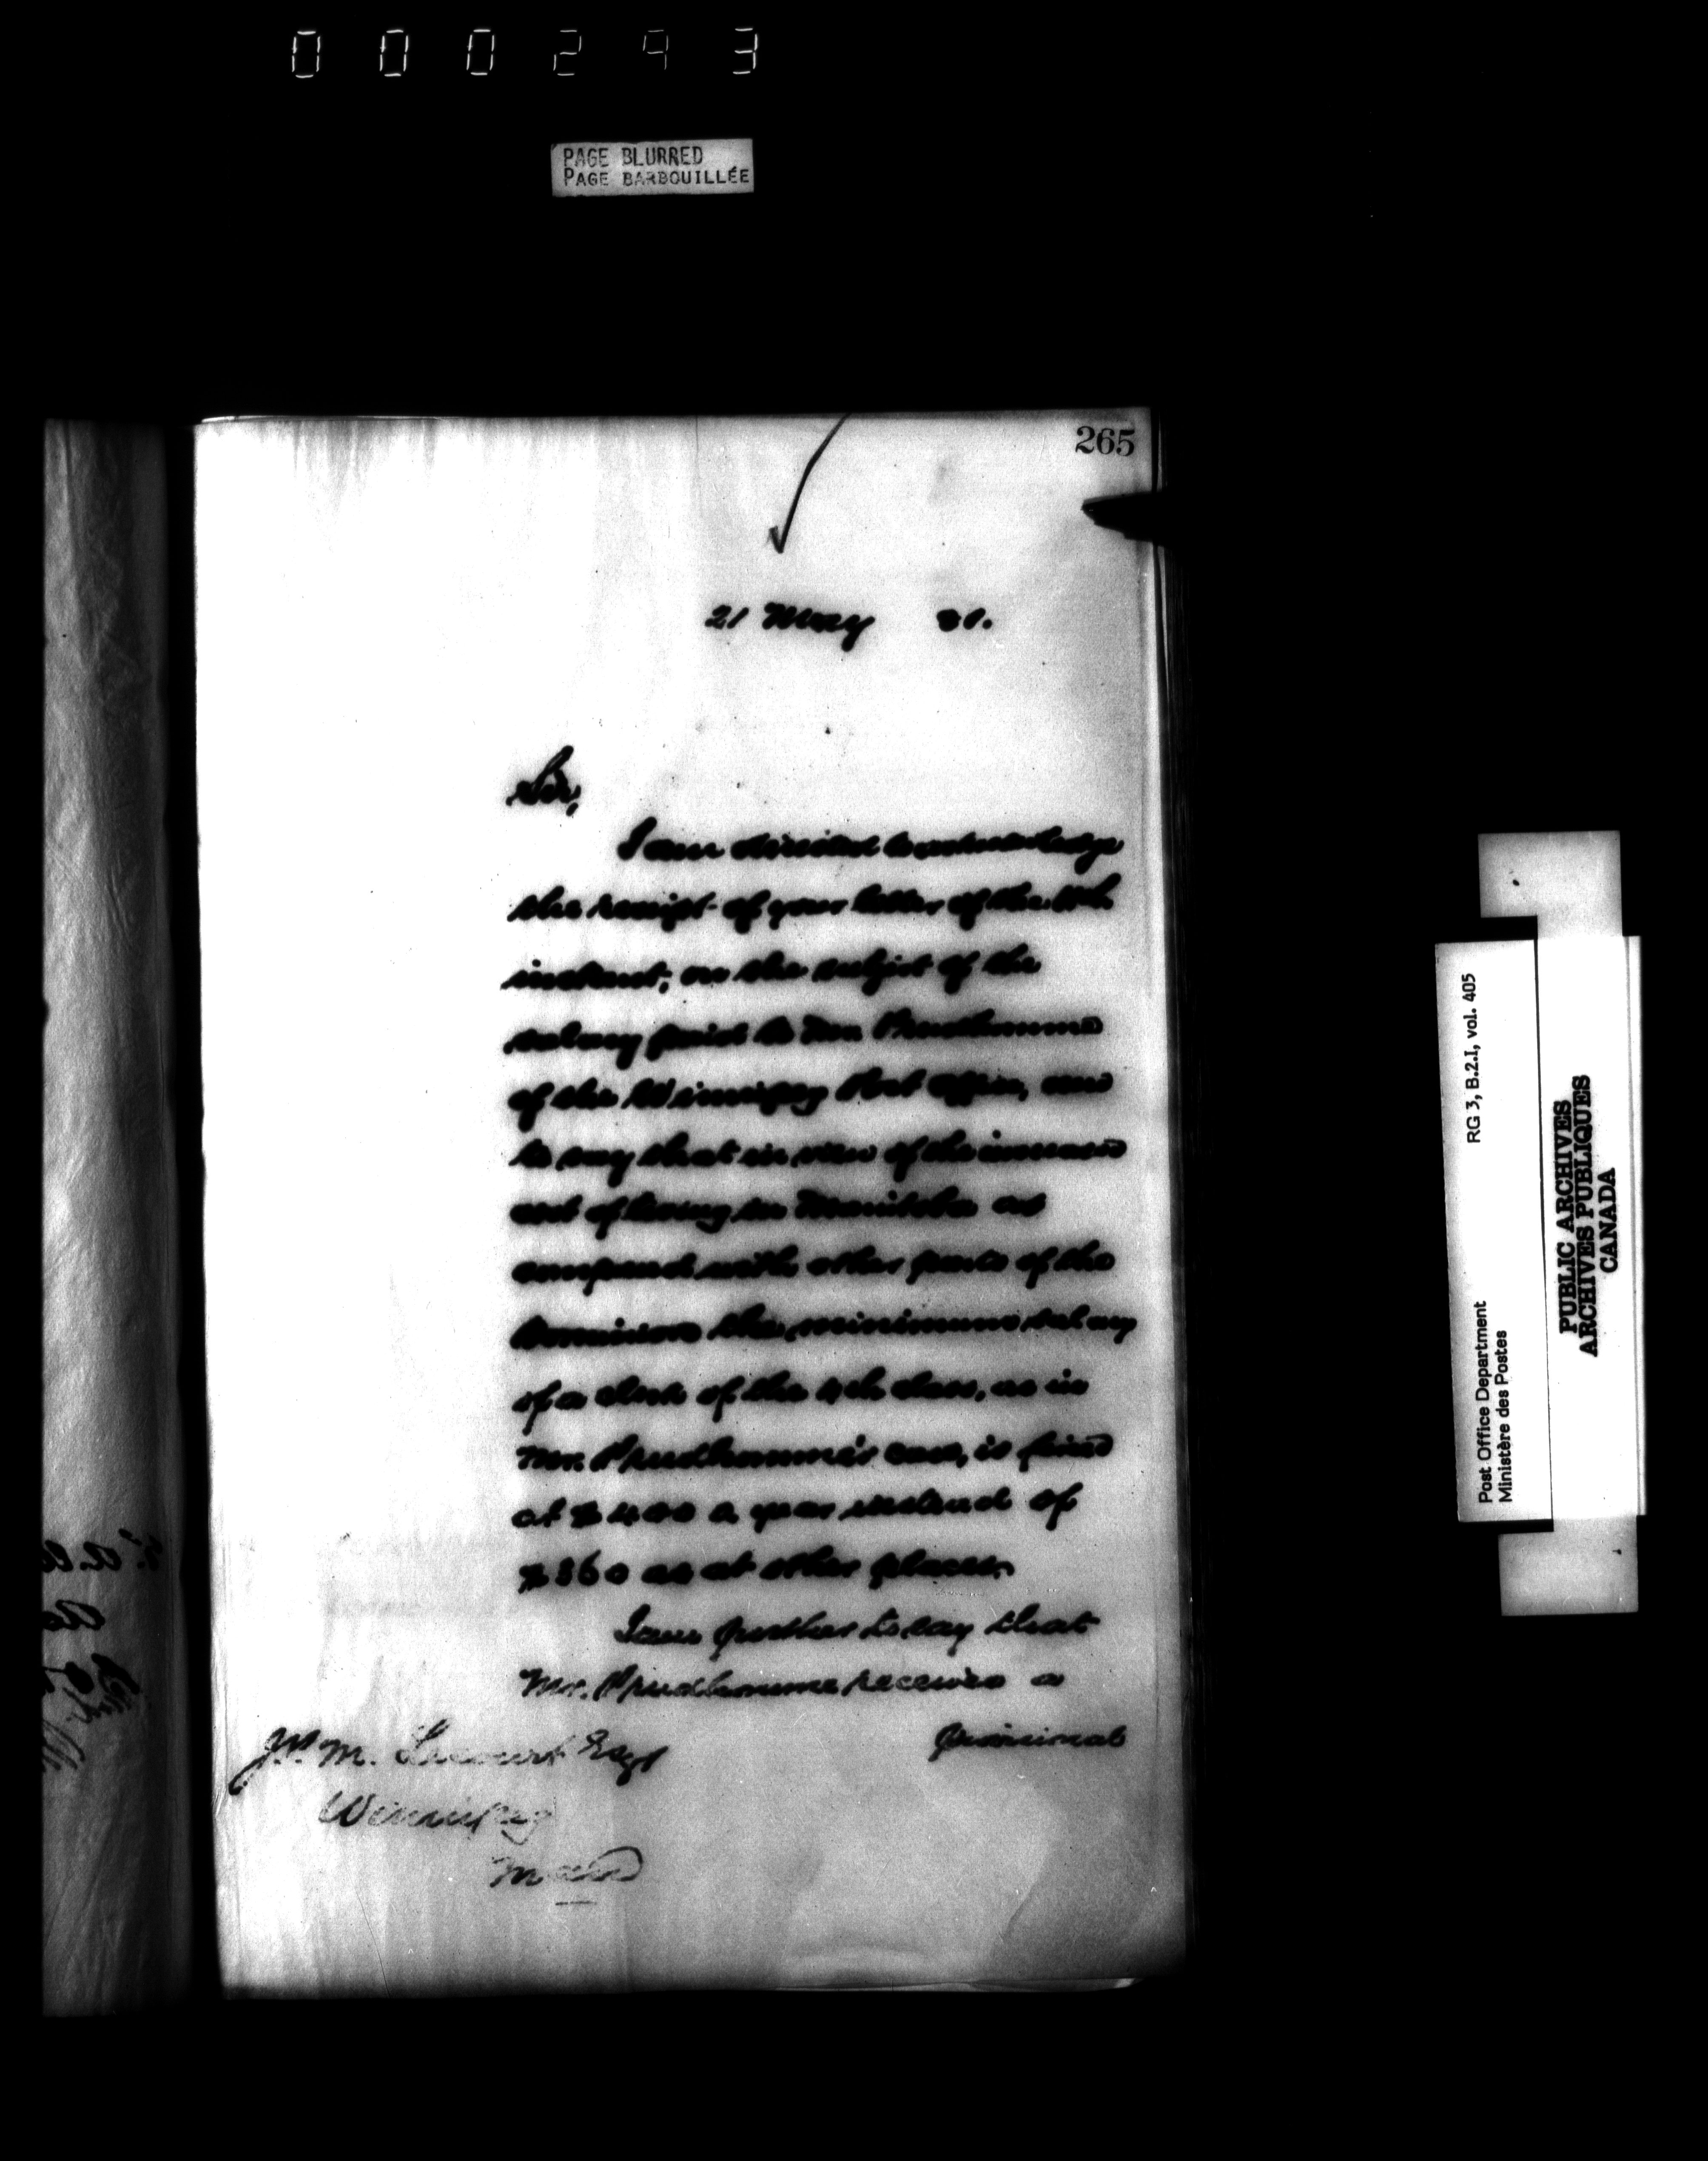 000243
PAGE BLURRED
PAGE BARBOUILLÉE
265
21 May 81.
Sir,
I am directed to acknowledge
the receipt of your letter of the
instant, on the subject of the
salary paid to Mr. Prudhomme
of the Winnipeg Post Office, and
to say that in view of the increased
cost of living in Manitoba as
compared with other parts of the
Dominion the minimum salary
of a clerk of the 4th class, as in
Mr. Prudhomme's case, is fixed
at $400 a year instead of
$360 as at other places.
I am further to say that
Mr. Prudhomme receives a
provisional
M. Esqr
Winnipeg
Man
RG 3, B.2.I, vol. 405
Post Office Department
Ministère des Postes
PUBLIC ARCHIVES
ARCHIVES PUBLIQUES
CANADA